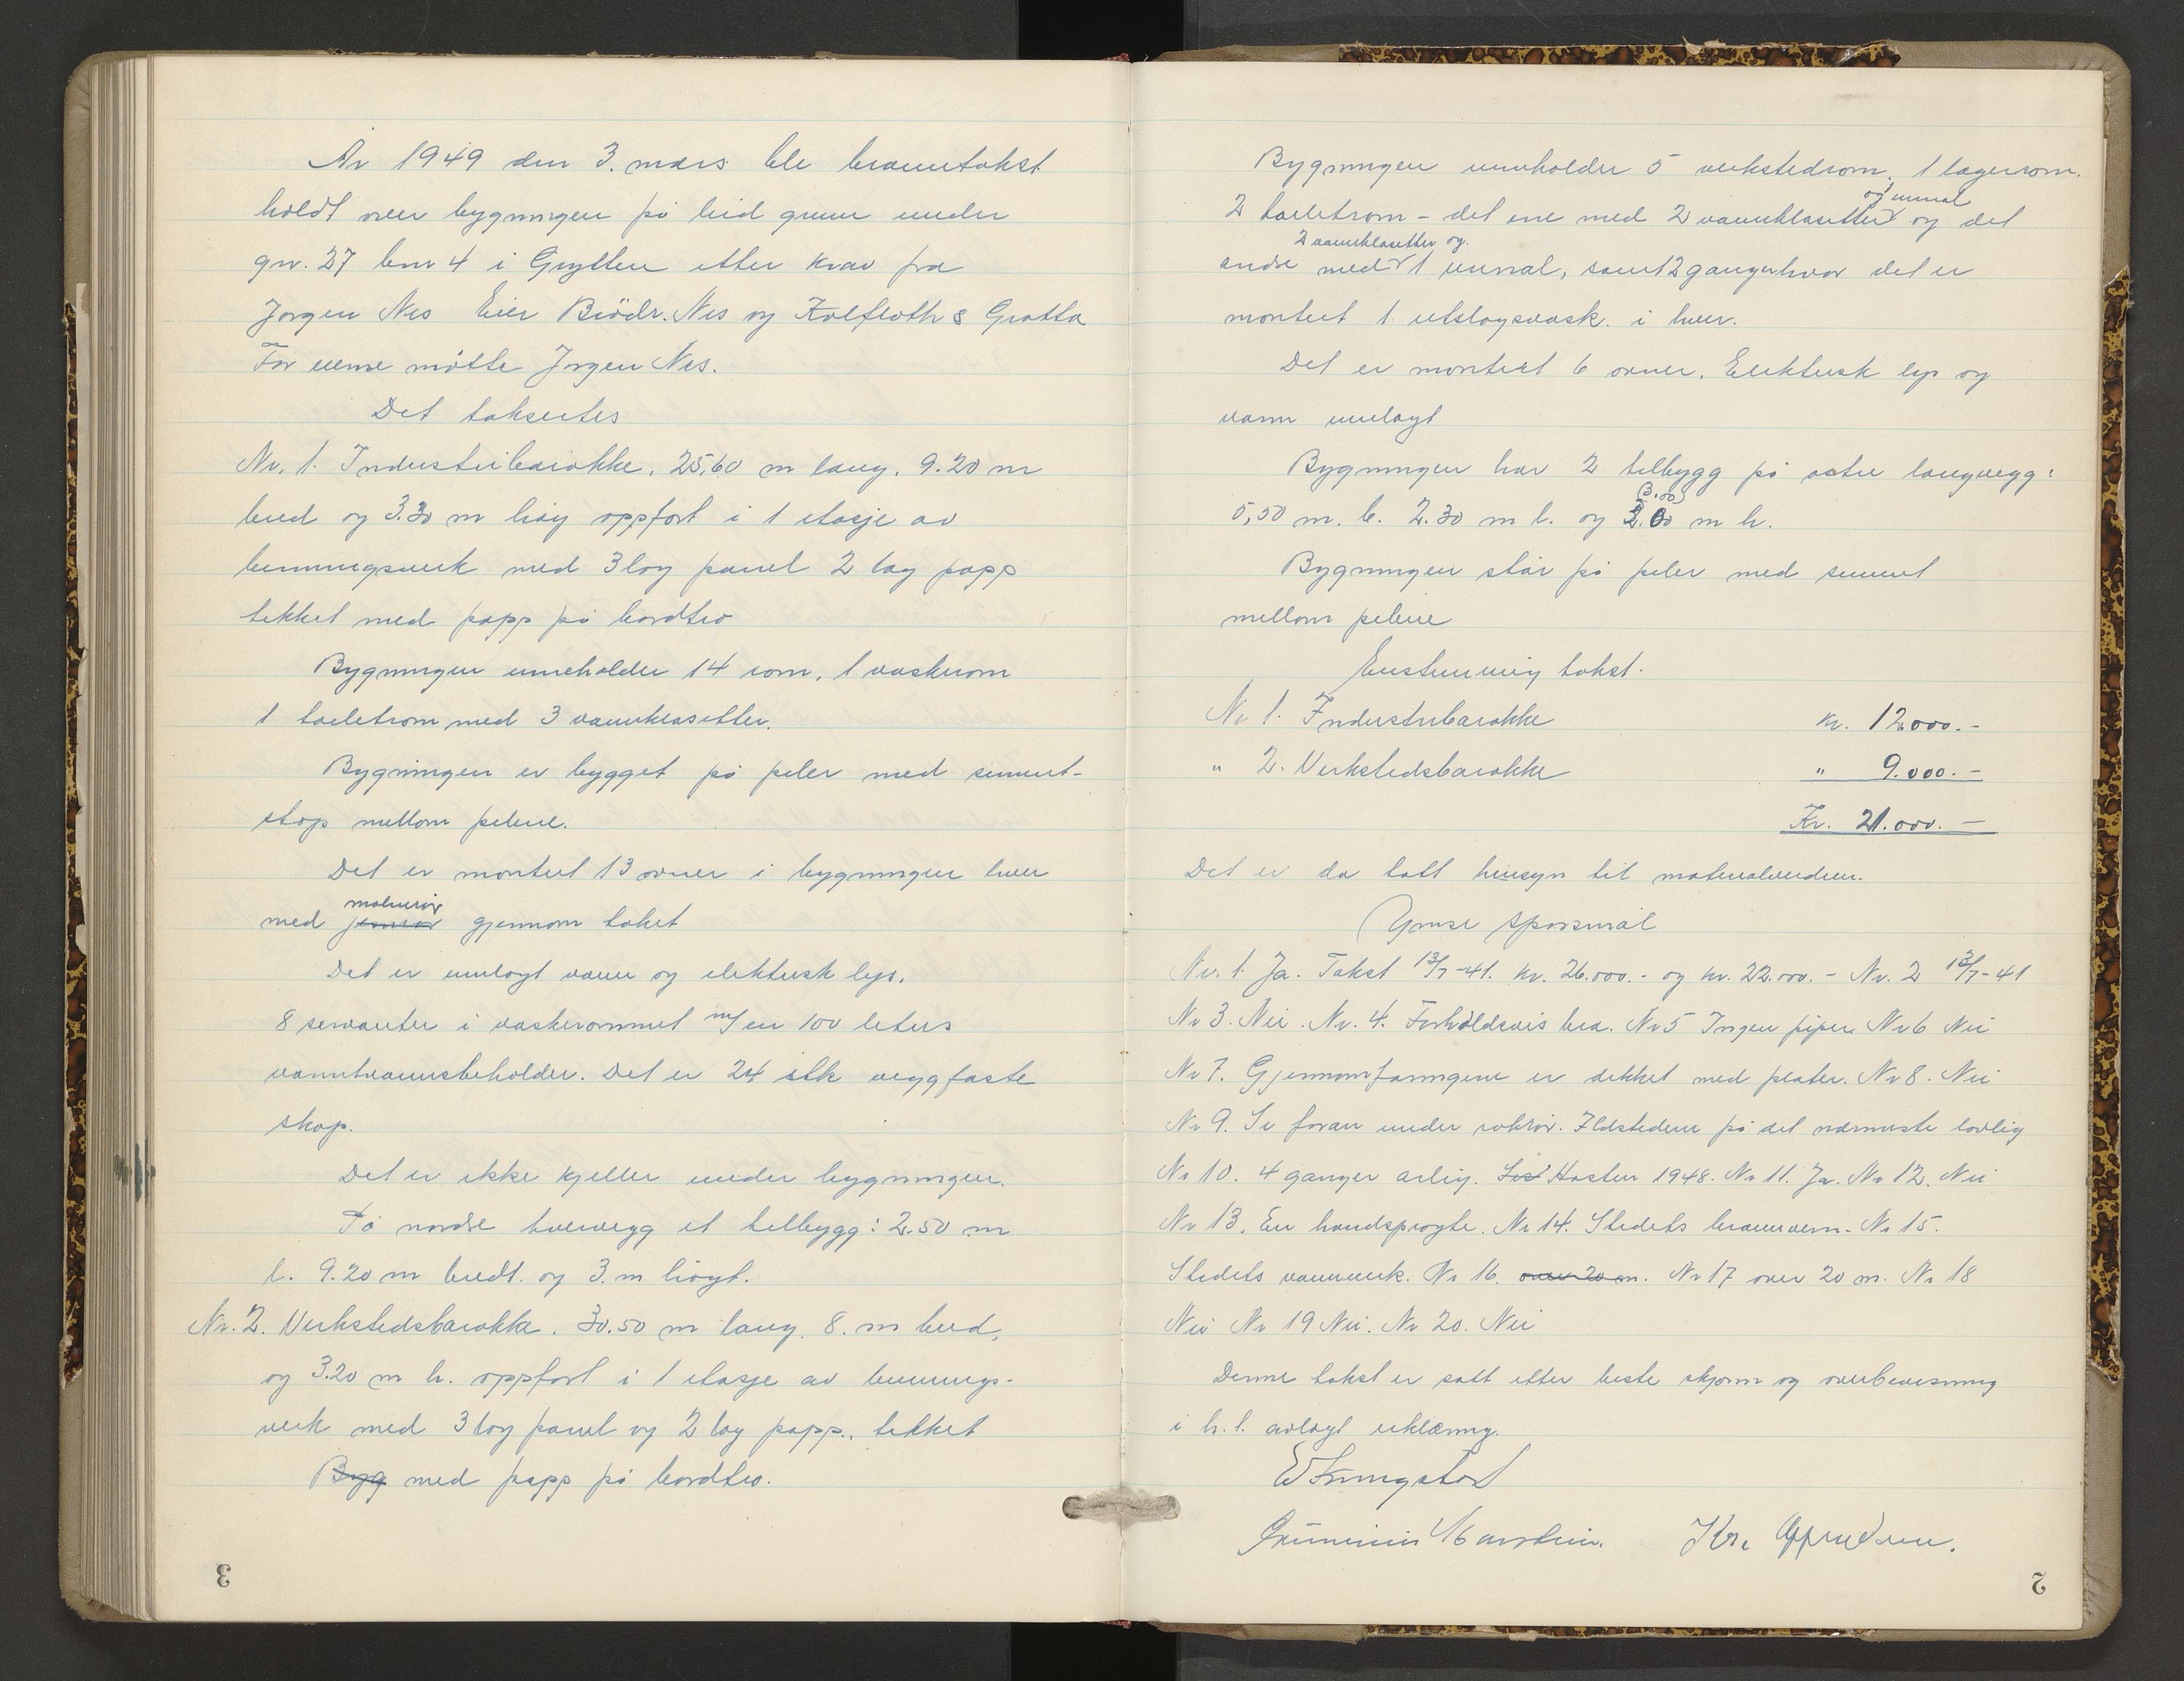 År 1949 den 3. mars ble branntakst
holdt over bygningen på leid grunn under
gnr. 27 bnr 4 i Gryllen etter krav fra
Jørgen Nes Eier Brödr. Nes og Kolfloth & Grøtta
For eierne møtte Jørgen Nes.
Det takseртes
Nr. 1. Industribarakke, 25,60 m lang. 9.20 m
bred og 3.30 m høy oppført i 1 etasje av
bindingsverk med 3 lag panel 2 lag papp
tekket med papp på bordtro
Bygningen inneholder 14 rom, 1 vaskerom
1 toaletrom med 3 vannklosetter.
Bygningen er bygget på peler med sement-
støp mellom pelene.
Det er montert 13 ovner i bygningen hver
med malmrør gjennom taket
Det er innlagt vann og elektrisk lys.
8 servanter i vaskerommet m/ en 100 liters
varmtvannsbeholder. Det er 24 stk veggfaste
skap.
Det er ikke kjeller under bygningen.
På nordre tverrvegg et tilbygg: 2.50 m
l. 9.20 m bredt. og 3. m høgt.
Nr. 2. Verkstedsbarakke. 30.50 m lang. 8. m bred,
og 3.20 m h. oppført i 1 etasje av bindings-
verk med 3 lag panel og 2 lag papp., tekket
Byg med papp på bordtro.
3
Bygningen inneholder 5 verkstedrom, 1 lagerrom.
2 toaletrom - det ene med 2 vannklosetter og urinal og det
andre med 2 vannklosetter og 1 urinal, samt 2 ganger hvor det er
montert 1 utslagsvask. i hver.
Det er montert 6 ovner. Elektrisk lys og
vann innlagt
Bygningen har 2 tilbygg på østre langvegg:
5,50 m. b. 2.30 m l. og 3.00 (3.00) m h.
Bygningen står på peler med sement
mellom pelene
Enstemmig takst.
Nr 1. Industribarakke kr. 12000.-
" 2. Verkstedsbarakke " 9.000.-
Kr. 21.000.-
Det er da tatt hensyn til materialverdien.
Ymse spørsmål
Nr. 1. Ja. Takst 13/7-41. kr. 26.000.- og kr. 22.000.- Nr. 2 13/7-41
Nr 3. Nei. Nr. 4. Forholdsvis bra. Nr 5 Ingen piper Nr 6 Nei
Nr 7. Gjennomføringene er dekket med plater. Nr 8. Nei
Nr 9. Se foran under rökrör. Ildstedene på det nærmeste lovlig
Nr 10. 4 ganger årlig. Sist Høsten 1948. Nr 11. Ja. Nr 12. Nei
Nr 13. En handsprøyte. Nr 14. Stedets brannvern. Nr 15.
Stedets vannverk. Nr 16. over 20 m. Nr 17 over 20 m. Nr 18
Nei Nr 19 Nei. Nr 20. Nei
Denne takst er satt etter beste skjønn og overbevisning
i h. t. avlagt erklæring.
Kr.
2